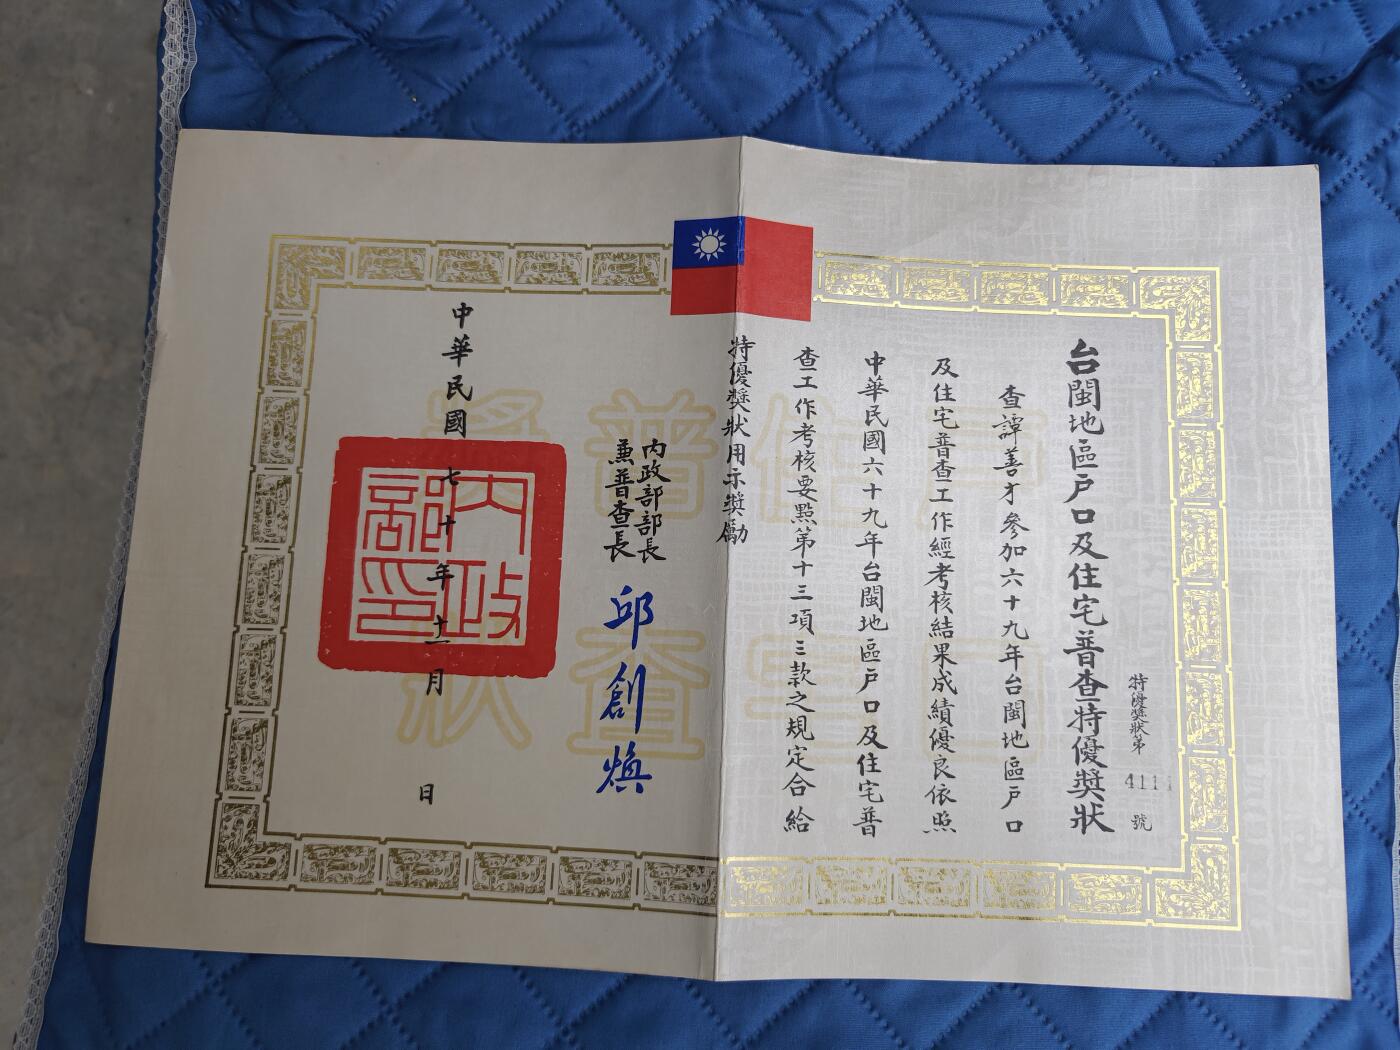 台閩地區戶口及住宅普查特優獎狀
特優獎狀第4111號
查譚善才參加六十九年台閩地區戶口
及住宅普查工作經考核結果成績優良依照
中華民國六十九年台閩地區戶口及住宅普
查工作考核要點第十三項三款之規定合給
特優獎狀用示獎勵
內政部部長
兼普查長
邱創煥
中華民國七十年十一月 日
內政
部印
戶口住宅普查獎狀